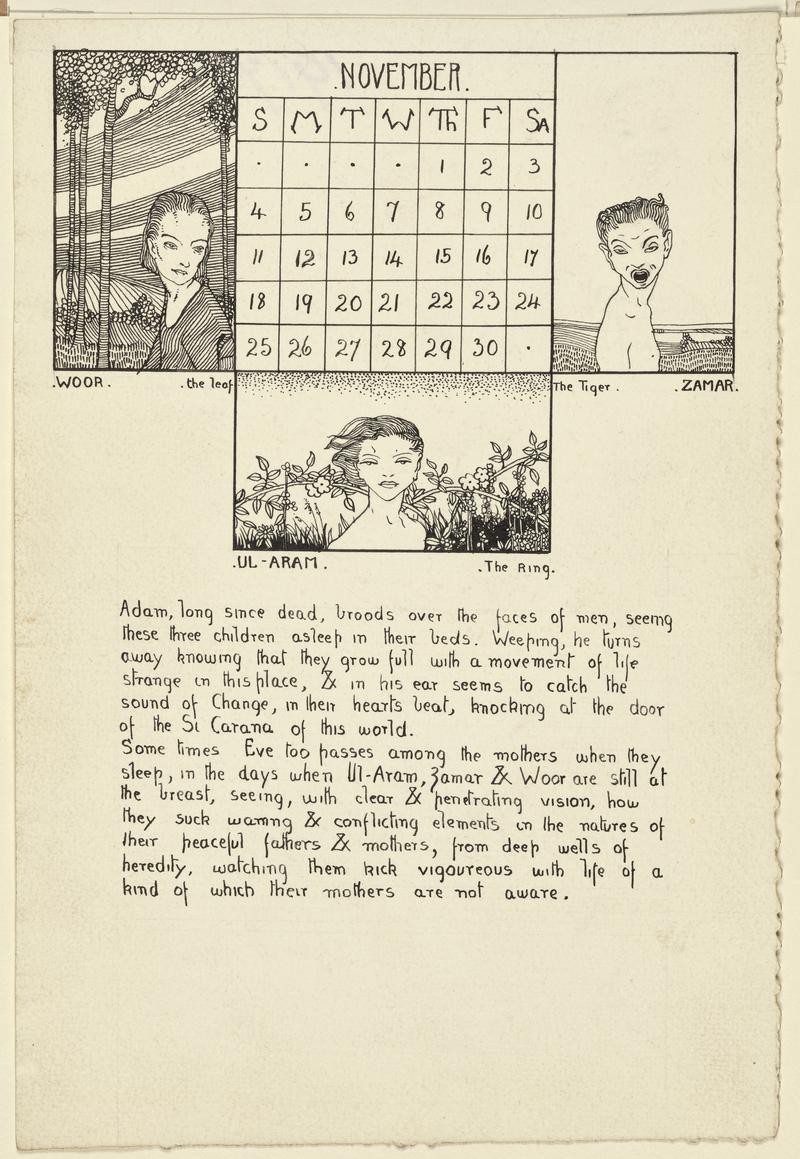 .NOVEMBER.
S M T W Th F SA
. . . . 1 2 3
4 5 6 7 8 9 10
11 12 13 14 15 16 17
18 19 20 21 22 23 24
25 26 27 28 29 30 .
.WOOR. .the leaf
The Tiger. .ZAMAR.
.UL-ARAM. .The Ring.
Adam, long since dead, broods over the faces of men, seeing
these three children asleep in their beds. Weeping, he turns
away knowing that they grow full with a movement of life
strange in this place, & in his ear seems to catch the
sound of Change, in their hearts beat, knocking at the door
of the Si Carana of this world.
Some times Eve too passes among the mothers when they
sleep, in the days when Ul-Aram, Zamar & Woor are still at
the breast, seeing, with clear & penetrating vision, how
they suck warring & conflicting elements in the natures of
their peaceful fathers & mothers, from deep wells of
heredity, watching them kick vigoureous with life of a
kind of which their mothers are not aware.